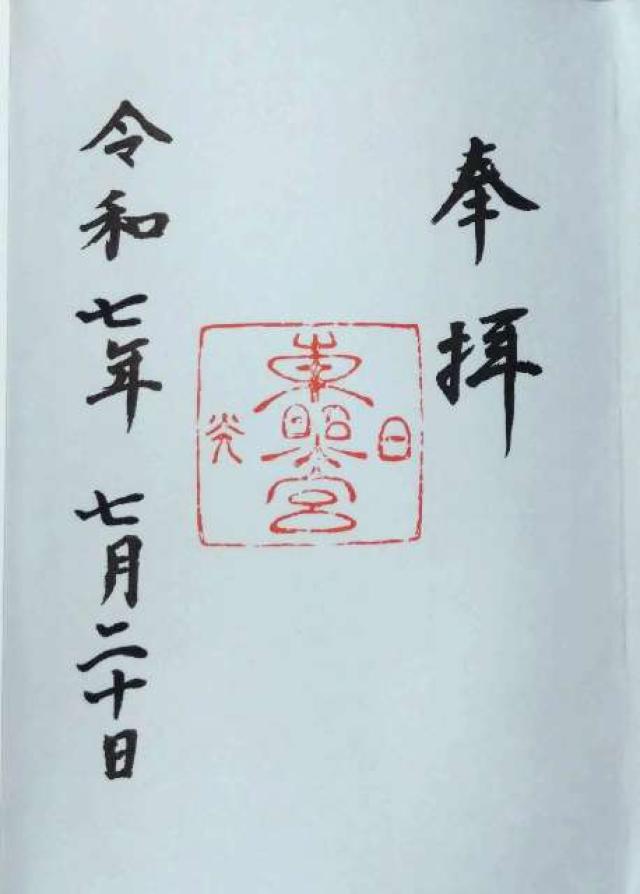 奉拝
日
東照宮
光
令和七年 七月二十日